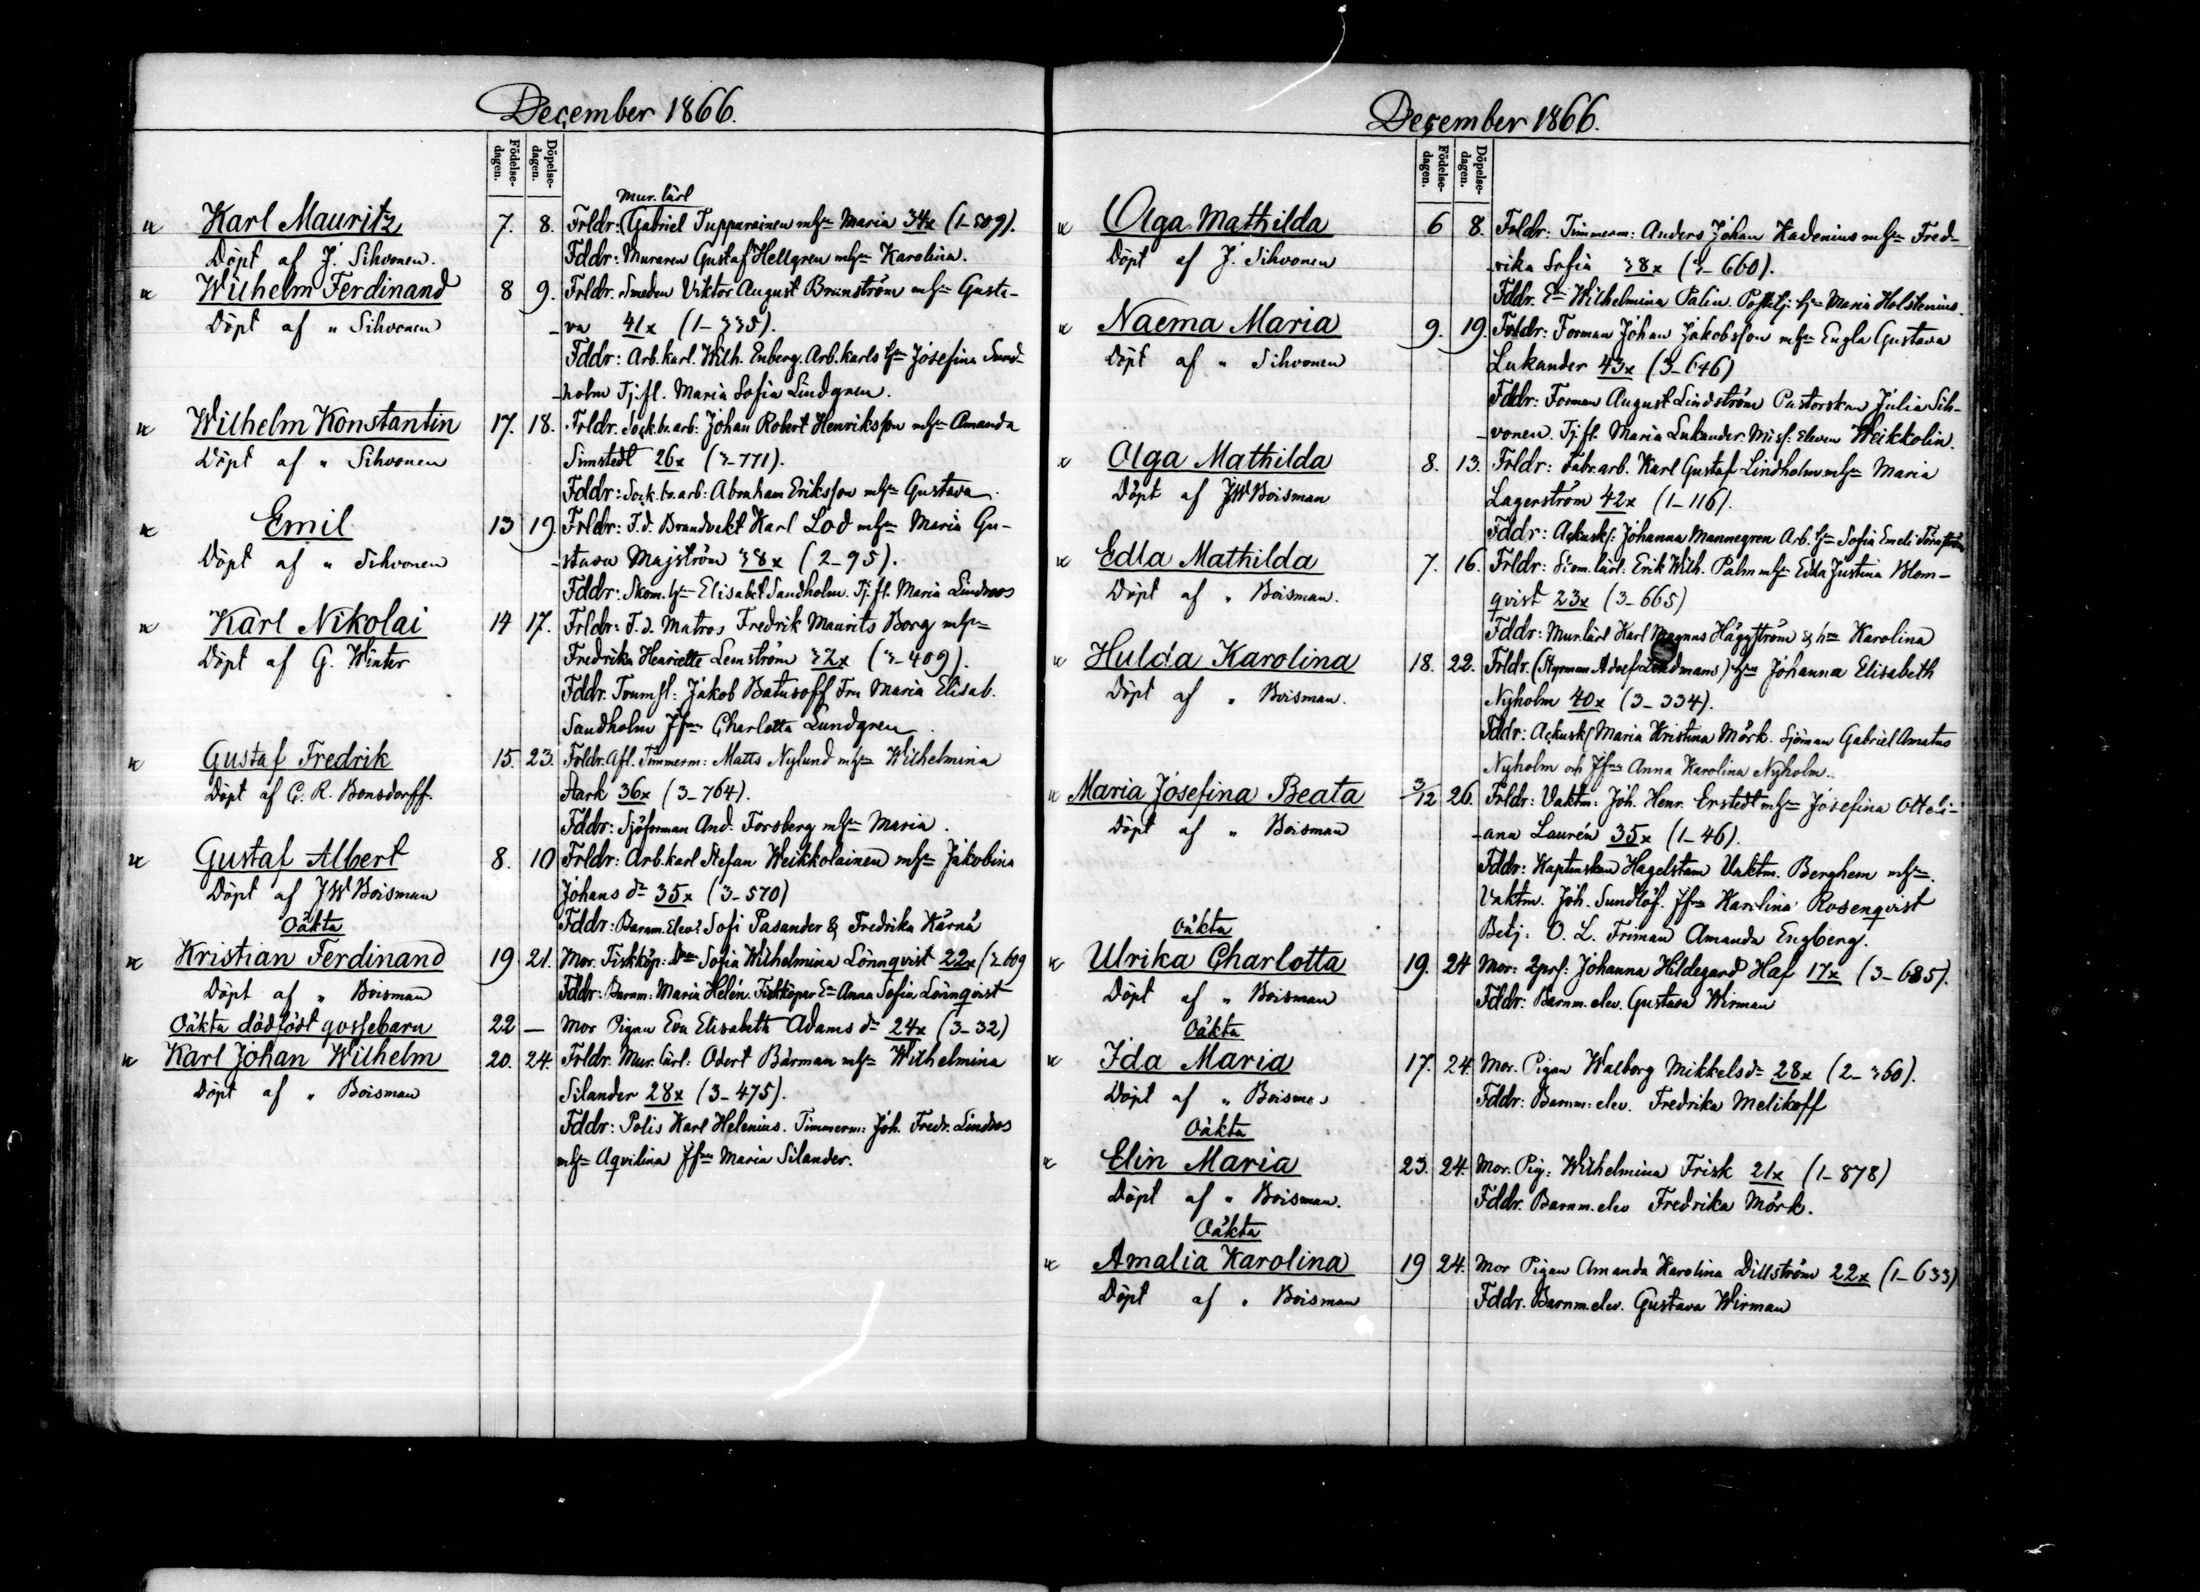 December 1866.
Födelse-dagen.
Döpelse-dagen.
Mur. lärl
Karl Mauritz 7. 8. Frldr: (Gabriel Tupparainen mhn Maria 34x (1-509).
Döpt af J. Sihvonen. Fddr: Muraren Gustaf Hellgren mhn Karolina.
Wilhelm Ferdinand 8 9. Frldr. Smeden Viktor August Brunström mhn Gusta-
Döpt af " Sihvonen -va 41x (1-335).
Fddr: Arb.karl. Wilh. Enberg. Arb.karls hn Josefina Sund-
-holm Tj.fl. Maria Sofia Lindgren.
Wilhelm Konstantin 17. 18. Frldr. Sock.br.arb: Johan Robert Henriksson mhn Amanda
Döpt af " Sihvonen Simstedt 26x (3-771).
Fddr: Sock.br.arb: Abraham Eriksson mhn Gustava.
Emil 13 19. Frldr: F.d. Brandvakt Karl Lod mhn Maria Gu-
Döpt af " Sihvonen -stava Majström 38x (2-95).
Fddr: Skom. hn Elisabet Sandholm. Tj.fl. Maria Lindroos
Karl Nikolai 14 17. Frldr: F.d. Matros Fredrik Maurits Borg mhn
Döpt af G. Winter Fredrika Henriette Lemström 32x (3-409).
Fddr. Trumsl: Jakob Batusoff Fru Maria Elisab.
Sandholm Jfrn Charlotta Lundgren.
Gustaf Fredrik 15. 23. Frldr. Afl. Timmerm: Matts Nylund mhn Wilhelmina
Döpt af C. R. Bonsdorff. Stark 36x (3-764).
Fddr: Sjöforman And. Forsberg mhn Maria.
Gustaf Albert 8. 10 Frldr: Arb.karl Stefan Weikkolainen mhn Jakobina
Döpt af JW Boisman Johans dr 35x (3-570)
Oäkta Fddr: Barnm.elev: Sofi Pasander & Fredrika Kärnä
Kristian Ferdinand 19 21. Mor. Fiskköp: Dtn Sofia Wilhelmina Lönnqvist 22x (3-609
Döpt af " Boisman Fddr: Barnm: Maria Helén. Fiskköpar En Anna Sofia Lönnqvist
Oäkta dödfödt gossebarn 22 — Mor Pigan Eva Elisabeth Adams dr 24x (3-32)
Karl Johan Wilhelm 20. 24. Frldr. Mur.lärl: Odert Bärman mhn Wilhelmina
Döpt af " Boisman Silander 28x (3-475).
Fddr: Polis Karl Helenius. Timmerm: Joh. Fredr. Lindroos
mhn Aqvilina Jfrn Maria Silander.
December 1866.
Födelse-dagen.
Döpelse-dagen.
Olga Mathilda 6 8. Frldr: Timmerm: Anders Johan Hadenius mhn Fred-
Döpt af J. Sihvonen -rika Sofia 38x (3-660).
Fddr. En Wilhelmina Palin. Postilj: hn Maria Holstenius.
Naema Maria 9. 19. Frldr: Forman Johan Jakobsson mhn Engla Gustava
Döpt af " Sihvonen Lukander 43x (3-646)
Fddr: Forman August Lindström Pastorskan Julia Sih-
-vonen. Tj.fl. Maria Lukander. Miss: eleven Weikkolin.
Olga Mathilda 8. 13. Frldr: Fabr.arb. Karl Gustaf Lindholm mhn Maria
Döpt af JW Boisman Lagerström 42x (1-116).
Fddr: Ackusk: Johanna Mannegren Arb. hn Sofia Emeli Törnström
Edla Mathilda 7. 16. Frldr: Skom. lärl: Erik Wilh. Palm mhn Edla Justina Blom-
Döpt af " Boisman. qvist 23x (3-665)
Fddr: Mur.lärl Karl Magnus Häggström & hn Karolina
Hulda Karolina 18. 22. Frldr. (Styrman Adolf Lindmans) hn Johanna Elisabeth
Döpt af " Boisman. Nyholm 40x (3-334).
Fddr: Ackusk: Maria Kristina Mörk. Sjöman Gabriel Amatus
Nyholm och Jfrn Anna Karolina Nyholm.
Maria Josefina Beata 3/12 26. Frldr: Vaktm: Joh. Henr. Erstedt mhn Josefina Otteli-
Döpt af " Boisman -ana Laurén 35x (1-46).
Fddr: Kaptenskan Hagelstam Vaktm. Berghem mhn.
Vaktm. Joh. Sundlöf. Jfrn Karolina Rosenqvist
Oäkta Betj: O. L. Friman Amanda Engberg.
Ulrika Charlotta 19. 24 Mor: 2prs: Johanna Hildegard Haf 17x (3-685).
Döpt af " Boisman Fddr: Barnm. elev. Gustava Wirman
Oäkta
Ida Maria 17. 24. Mor. Pigan Walborg Mikkelsdr 28x (2-360).
Döpt af " Boisman Fddr: Barnm: elev. Fredrika Melikoff
Oäkta
Elin Maria 23. 24. Mor. Pig: Wilhelmina Frisk 21x (1-878)
Döpt af " Boisman. Fddr. Barnm. elev Fredrika Mörk.
Oäkta
Amalia Karolina 19 24. Mor Pigan Amanda Karolina Dillström 22x (1-633)
Döpt af " Boisman Fddr. Barnm.elev. Gustava Wirman